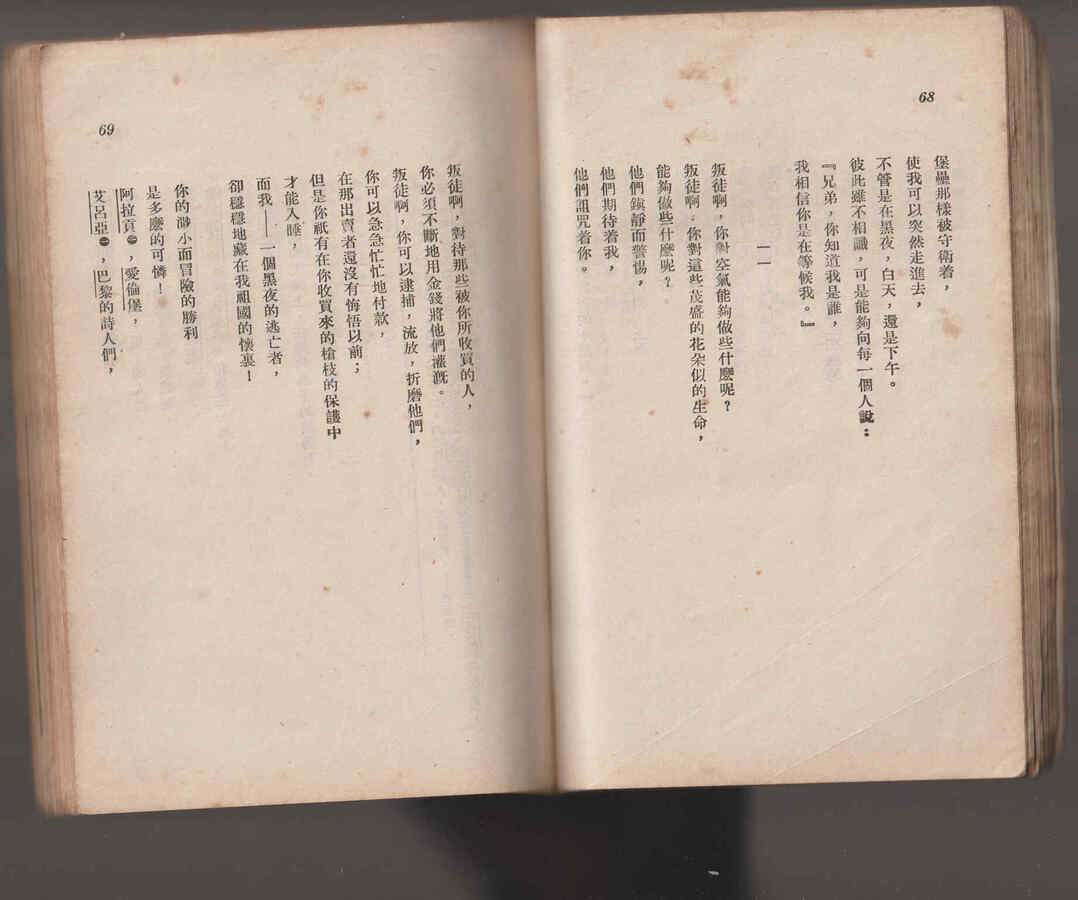 68
堡壘那樣被守衛着，
使我可以突然走進去，
不管是在黑夜，白天，還是下午。
彼此雖不相識，可是能夠向每一個人說：
『兄弟，你知道我是誰，
我相信你是在等候我。』
一一
叛徒啊，你對空氣能夠做些什麼呢？
叛徒啊，你對這些茂盛的花朵似的生命，
能夠做些什麼呢？
他們鎮靜而警惕，
他們期待着我，
他們詛咒着你。
69
叛徒啊，對待那些被你所收買的人，
你必須不斷地用金錢將他們灌溉。
叛徒啊，你可以逮捕，流放，折磨他們，
你可以急急忙忙地付款，
在那出賣者還沒有悔悟以前；
但是你祇有在你收買來的槍枝的保護中
才能入睡，
而我——一個黑夜的逃亡者，
卻穩穩地藏在我祖國的懷裏！
你的渺小而冒險的勝利
是多麼的可憐！
阿拉貢㊀，愛倫堡，
艾呂亞㊁，巴黎的詩人們，